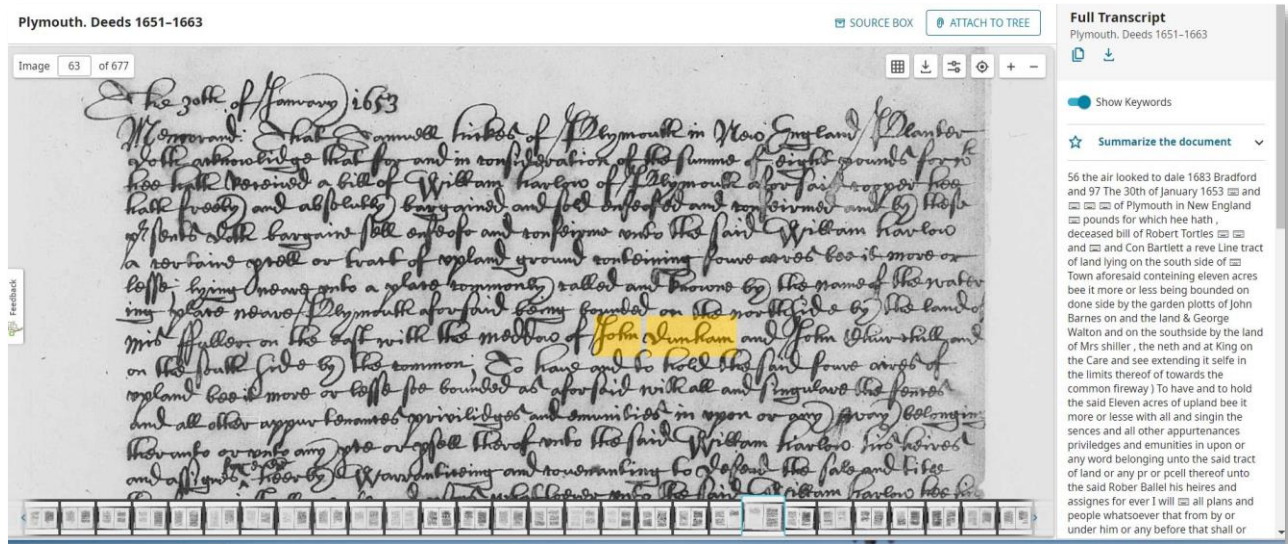 Plymouth. Deeds 1651–1663
SOURCE BOX
ATTACH TO TREE
Image 63 of 677
The 30th of January 1653
Memorand: That Samuell hickes of Plymouth in New England Planter
doth acknowlidge that for and in consideration of the summe of eight pounds for wch
hee hath Received a bill of William harlow of Plymouth aforsaid Cooper hee
hath freely and absolutely bargained and sold enfeofed and confeirmed and by these
psents doth bargaine sell enfeofe and confeirme unto the said William harlow
a certaine psell or tract of upland ground conteining foure acres bee it more or
lesse; lying neare unto a place comonly called and knowne by the name of the water
ing place neare Plymouth aforsaid being bounded on the northside by the land of
mis ffuller on the east with the meddow of John Dunham and John Churchill and
on the south side by the common; To have and to hold the said foure acres of
upland bee it more or lesse soe bounded as aforsaid with all and singulare the fences
and all other appurtenances privilidges and emunities in upon or any way belonging
therunto or unto any pte or psell therof unto the said William harlow his heires
and assignes for ever heerby Warrantiseing and covenanting to Defend the sale and title
the said William harlow hee his
Feedback
Full Transcript
Plymouth. Deeds 1651–1663
Show Keywords
Summarize the document
56 the air looked to dale 1683 Bradford
and 97 The 30th of January 1653 and
of Plymouth in New England
pounds for which hee hath ,
deceased bill of Robert Tortles
and and Con Bartlett a reve Line tract
of land lying on the south side of
Town aforesaid conteining eleven acres
bee it more or less being bounded on
done side by the garden plotts of John
Barnes on and the land & George
Walton and on the southside by the land
of Mrs shiller , the neth and at King on
the Care and see extending it selfe in
the limits thereof of towards the
common fireway ) To have and to hold
the said Eleven acres of upland bee it
more or lesse with all and singin the
sences and all other appurtenances
priviledges and emunities in upon or
any word belonging unto the said tract
of land or any pr or pcell thereof unto
the said Rober Ballel his heires and
assignes for ever I will all plans and
people whatsoever that from by or
under him or any before that shall or